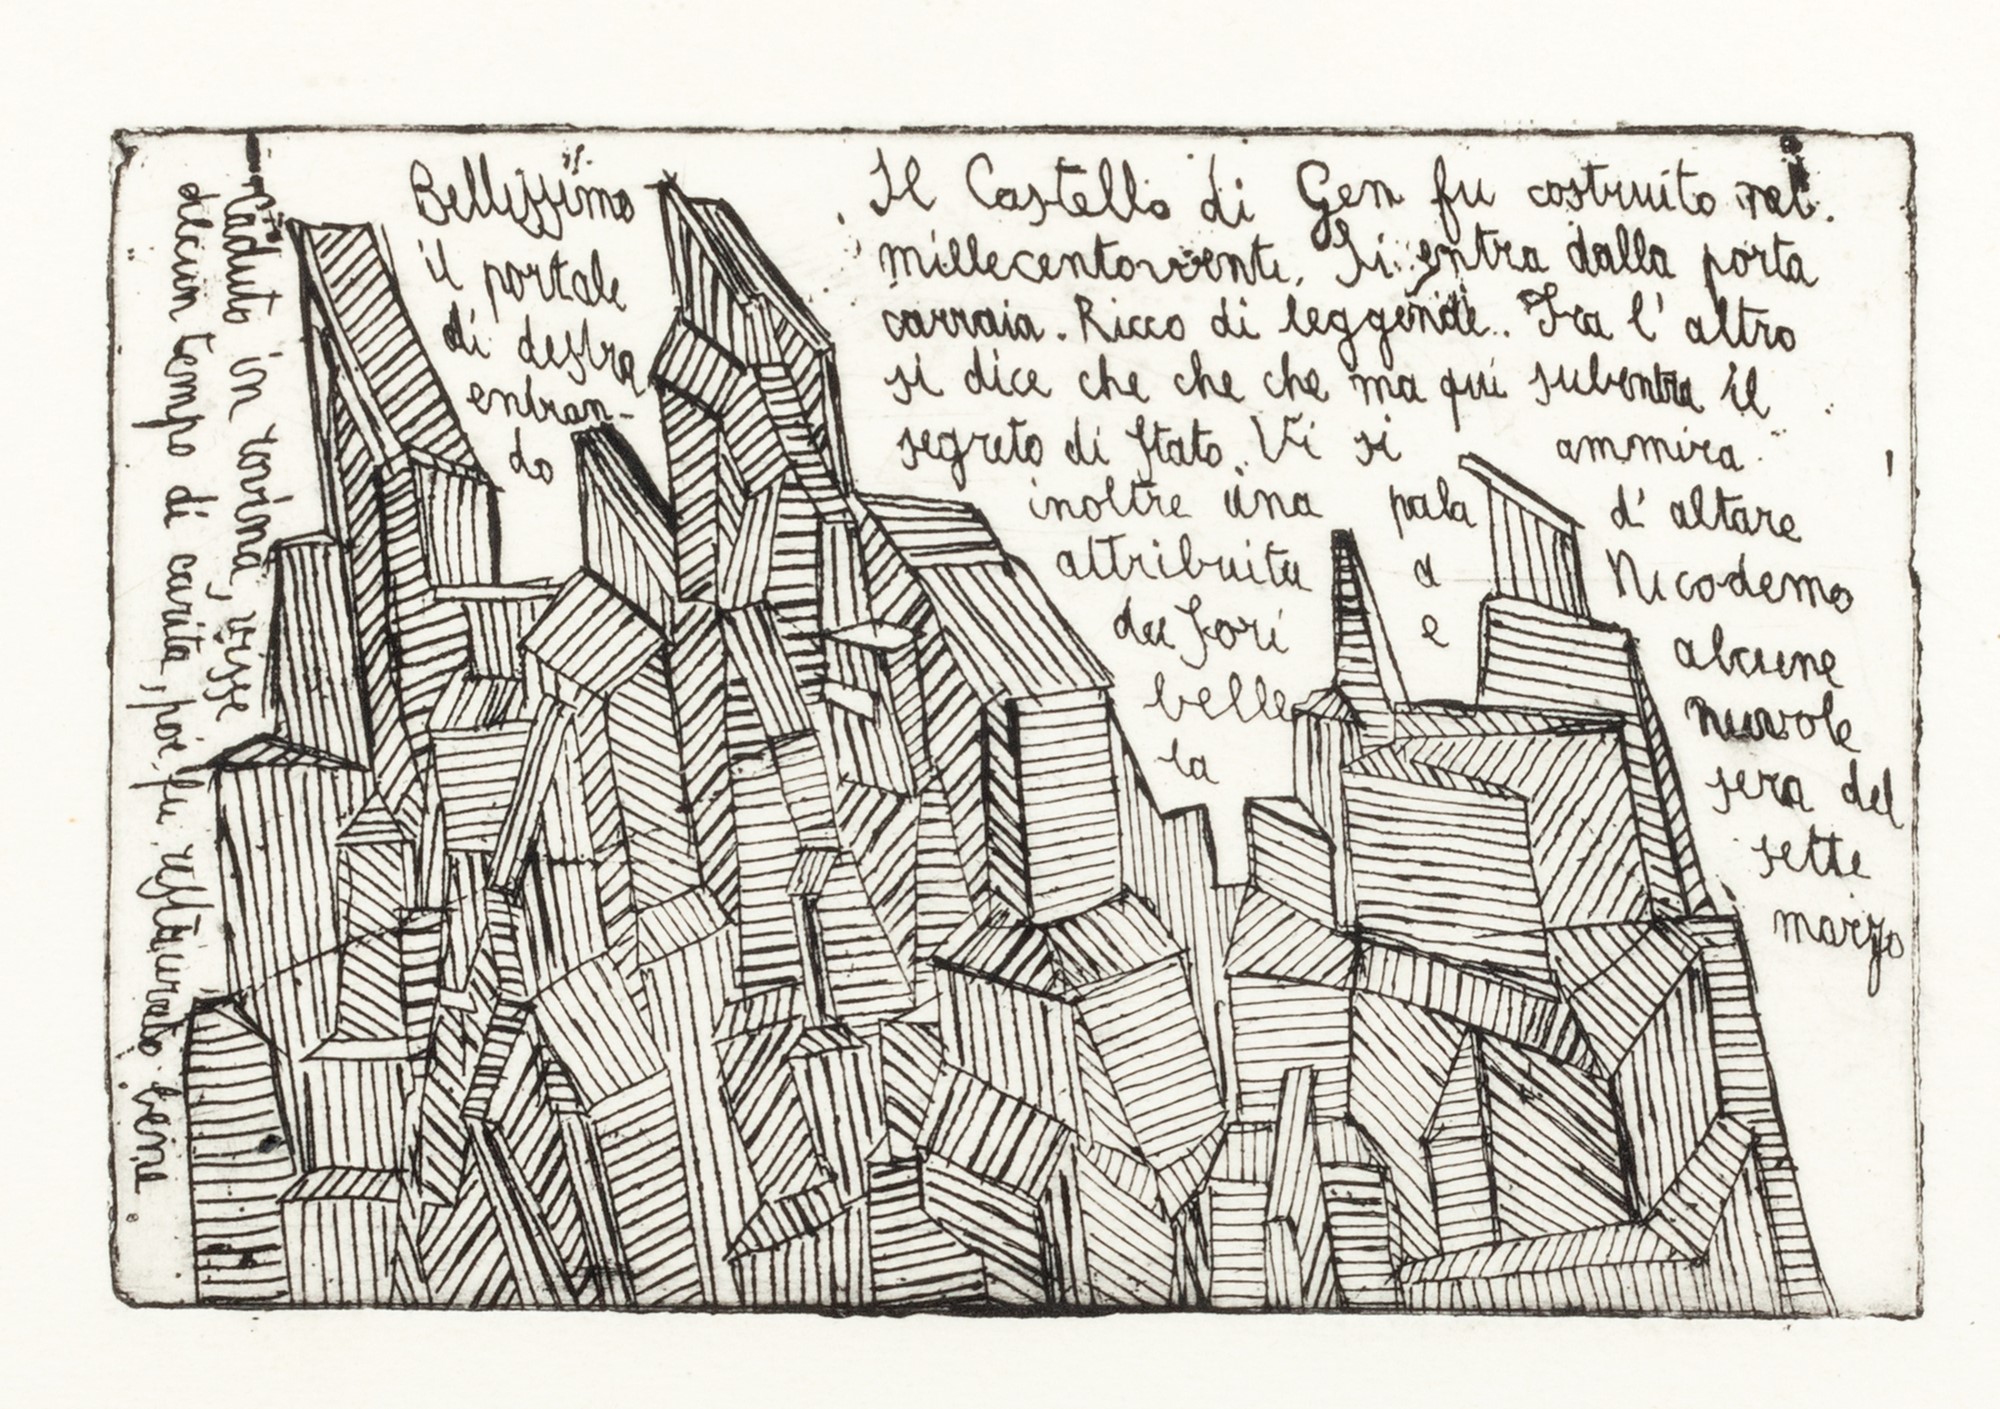 Caduto in rovina, visse
alcun tempo di carità, poi fu restaurato bene
Bellissimo
il portale
di destra
entran-
do
Il Castello di Gen fu costruito nel
Si entra dalla porta
carraia. Ricco di leggende. Fra l'altro
si dice che che che ma qui subentra il
segreto di Stato. Vi si ammira
inoltre una pala d'altare
attribuita a Nicodemo
da Forì e alcune
belle nuvole
la sera del
sette
marzo